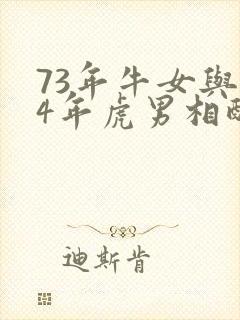 73年牛女與
4年虎男相
迪斯肯